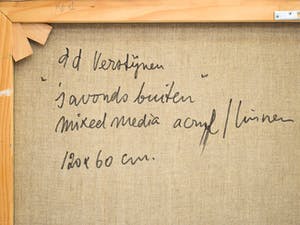 Ad Verstijnen
"'s avonds buiten"
mixed media acryl / linnen
120 x 60 cm.